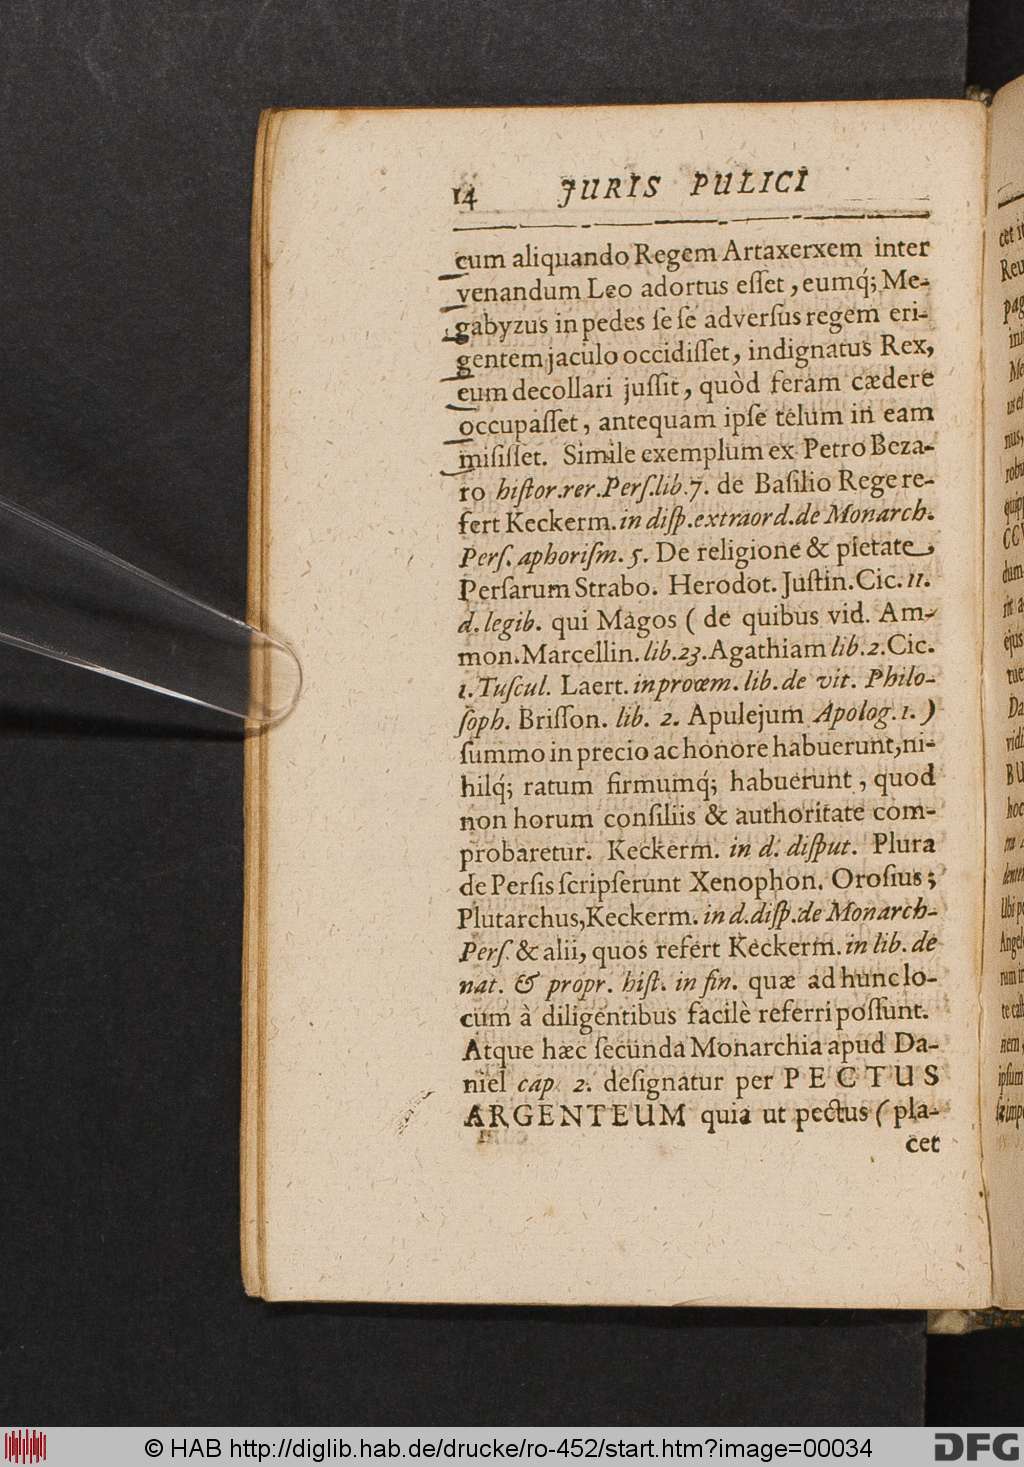 14 JURIS PULICI
cum aliquando Regem Artaxerxem inter
venandum Leo adortus eſſet, eumq́; Me-
gabyzus in pedes ſe ſe adverſus regem eri-
gentem jaculo occidiſſet, indignatus Rex,
eum decollari juſſit, quòd feram cædere
occupaſſet, antequam ipſe telum in eam
miſiſſet. Simile exemplum ex Petro Beza-
ro hiſtor.rer.Perſ.lib.7. de Baſilio Rege re-
fert Keckerm. in diſp.extraord.de Monarch.
Perſ. aphoriſm. 5. De religione & pietate,
Perſarum Strabo. Herodot. Juſtin. Cic. 11.
d. legib. qui Magos ( de quibus vid. Am-
mon. Marcellin. lib.23. Agathiam lib.2. Cic.
1. Tuſcul. Laert. in proœm. lib. de vit. Philo-
ſoph. Briſſon. lib. 2. Apulejum Apolog. 1. )
ſummo in precio ac honore habuerunt, ni-
hilq́; ratum firmumq́; habuerunt, quod
non horum conſiliis & authoritate com-
probaretur. Keckerm. in d. diſput. Plura
de Perſis ſcripſerunt Xenophon. Oroſius;
Plutarchus, Keckerm. in d.diſp.de Monarch-
Perſ. & alii, quos refert Keckerm. in lib. de
nat. & propr. hiſt. in fin. quæ ad hunc lo-
cum à diligentibus facilè referri poſſunt.
Atque hæc ſecunda Monarchia apud Da-
niel cap. 2. deſignatur per PECTUS
ARGENTEUM quia ut pectus ( pla-
cet
cet i
Reu
pag
ini
Me
us e
nus,
robu
quip
CCV
dum
rit a
ejus
tue
Da
vidi
BU
hoc
tra
dente
Ubi p
Angel
rum i
te caſt
nem,
ipſum
ſæ imp
© HAB http://diglib.hab.de/drucke/ro-452/start.htm?image=00034
DFG